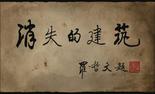 消失的建筑
罗哲文题